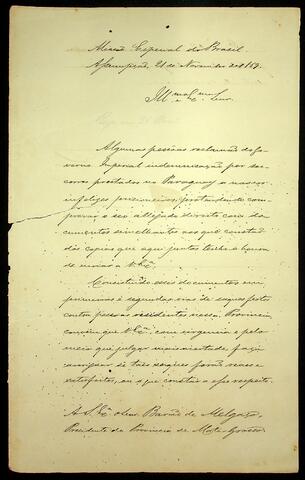 Missão Especial do Brasil
Assumpção, 21 de Novembro de 18
Ill.mo e Ex.mo Snr.
Algumas pessoas reclamão do Go-
verno Imperial indemnisação por soc-
corros prestados no Paraguay a nossos
infelizes prisioneiros, pretendendo com-
provar o seu allegado direito com do-
cumentos semelhantes aos que constão
das copias que aqui juntas tenho a honra
de enviar a V. Ex.ª
Consistindo esses documentos em
primeiras e segundas vias de saques feitos
contra pessoas residentes nessa Provincia,
convém que V. Ex.ª, com urgencia e pelo
meio que julgar mais conveniente, faça
averiguar se taes saques forão
satisfeitos, ou o que constar a esse respeito.
A S. Ex.ª o Snr. Barão de Melgaço,
Presidente da Provincia de Mato-Grosso